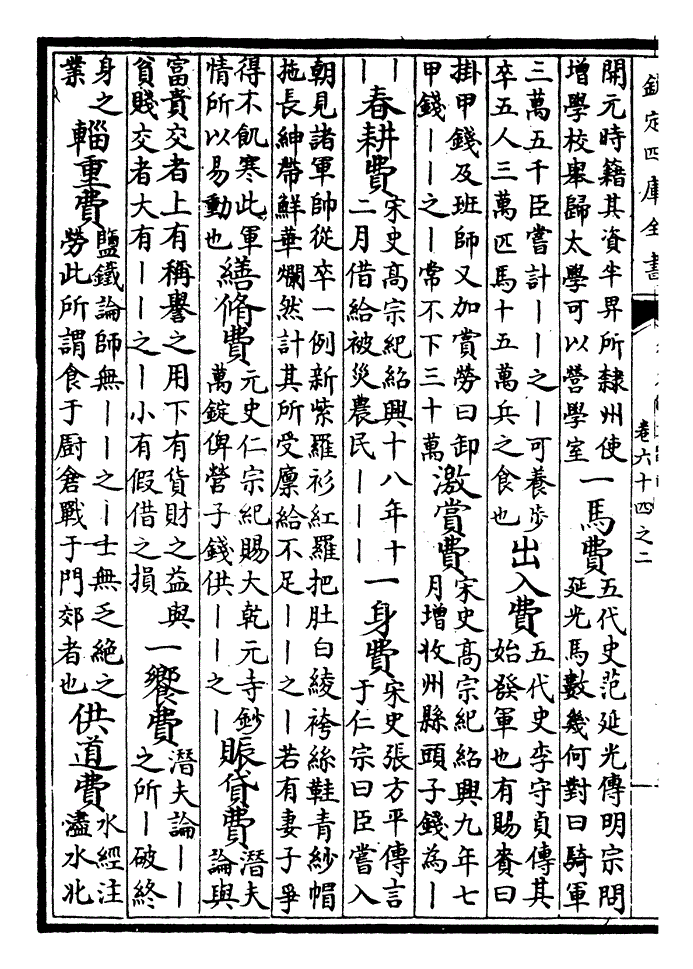 欽定四庫全書
卷六十四之二
開元時籍其資半畀所隸州使
增學校舉歸太學可以營學室
一馬費
五代史范延光傳明宗問
延光馬數幾何對曰騎軍
三萬五千臣嘗計——之—可養步
卒五人三萬匹馬十五萬兵之食也
出入費
五代史李守貞傳其
始發軍也有賜賚曰
掛甲錢及班師又加賞勞曰卸
甲錢——之—常不下三十萬
激賞費
宋史高宗紀紹興九年七
月增收州縣頭子錢為—
—
—
春耕費
宋史高宗紀紹興十八年十
二月借給被災農民———
一身費
宋史張方平傳言
于仁宗曰臣嘗入
朝見諸軍帥從卒一例新紫羅衫紅羅把肚白綾袴絲鞋青紗帽
拖長紳帶鮮華爛然計其所受廩給不足——之—若有妻子爭
得不飢寒此軍
情所以易動也
繕脩費
元史仁宗紀賜大乾元寺鈔
萬錠俾營子錢供——之—
賑貸費
潛夫
論與
富貴交者上有稱譽之用下有貨財之益與
貧賤交者大有——之—小有假借之損
一饗費
潛夫論——
之所—破終
身之
業
輜重費
鹽鐵論師無——之—士無乏絕之
勞此所謂食于厨倉戰于門郊者也
供道費
水經注
水北